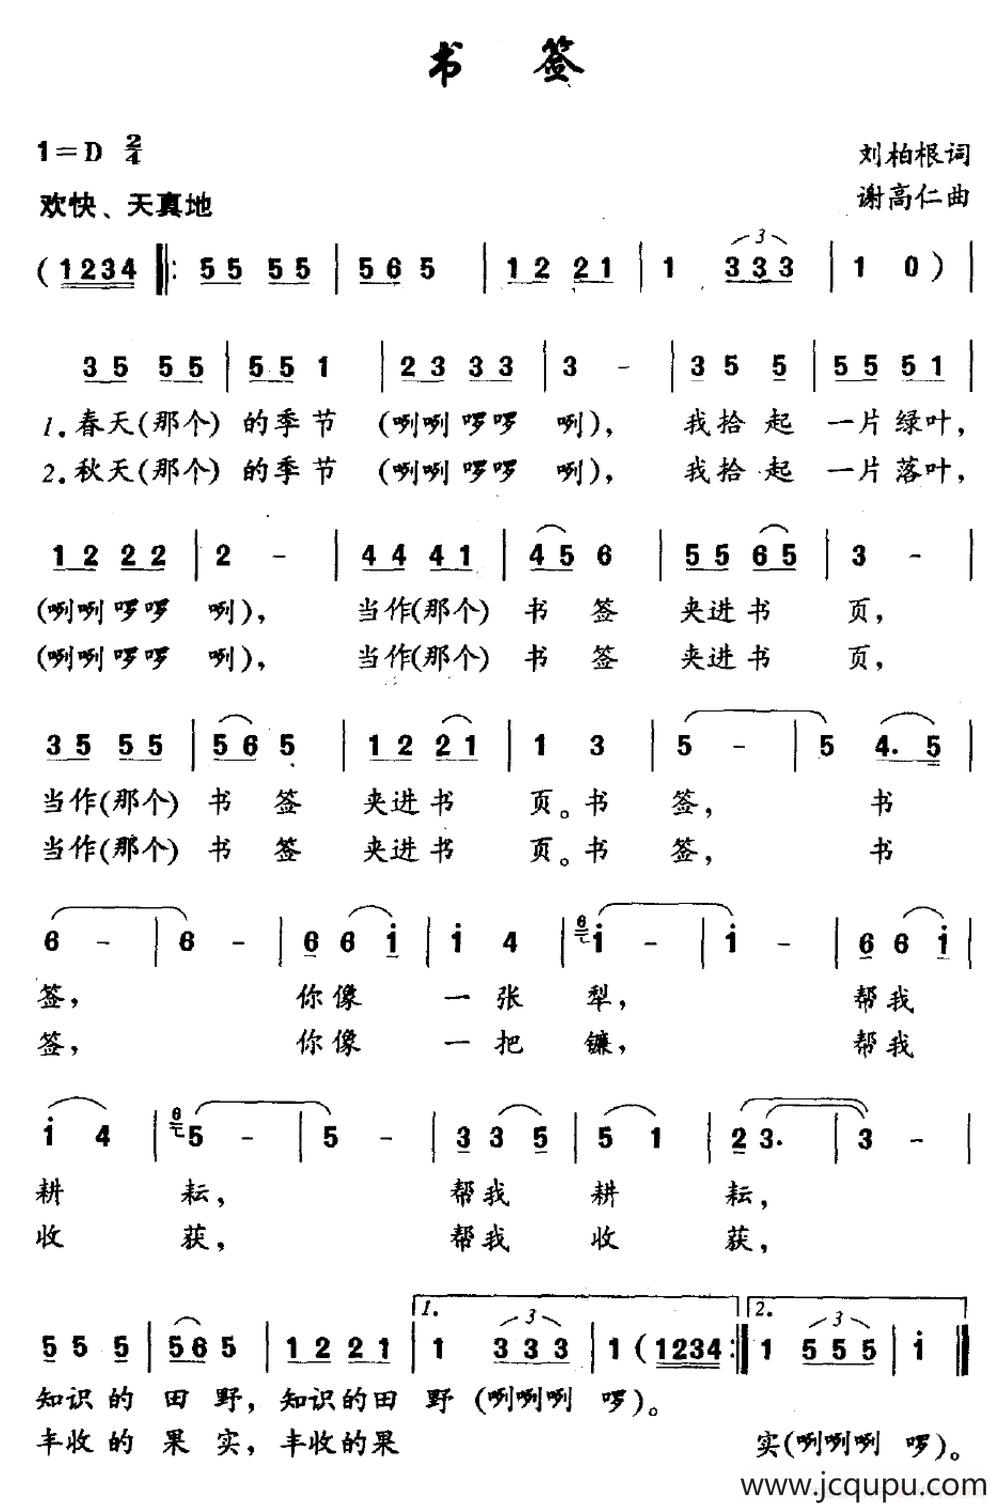 书 签
1=D 2/4
刘柏根词
欢快、天真地
谢高仁曲
(1234 ‖: 55 55 | 565 | 12 21 | 1 333 | 1 0) |
3
35 55 | 551 | 23 33 | 3 - | 35 5 | 55 51 |
1.春天(那个) 的季节 (咧咧啰啰 咧), 我拾起 一片绿叶,
2.秋天(那个) 的季节 (咧咧啰啰 咧), 我拾起 一片落叶,
12 22 | 2 - | 44 41 | 45 6 | 55 65 | 3 - |
(咧咧啰啰 咧), 当作(那个) 书 签 夹进书 页,
(咧咧啰啰 咧), 当作(那个) 书 签 夹进书 页,
35 55 | 56 5 | 12 21 | 1 3 | 5 - | 5 4. 5 |
当作(那个) 书 签 夹进书 页。书 签, 书
当作(那个) 书 签 夹进书 页。书 签, 书
6 - | 6 - | 6 6 i | i 4 | 6 i - | i - | 6 6 i |
签, 你像 一张 犁, 帮我
签, 你像 一把 镰, 帮我
i 4 | 6 5 - | 5 - | 3 3 5 | 5 1 | 2 3. | 3 - |
耕 耘, 帮我 耕 耘,
收 获, 帮我 收 获,
1. 2.
3 3
5 5 5 | 56 5 | 12 21 | 1 333 | 1 (1234 :‖ 1 555 | i ‖
知识的 田 野, 知识的田 野 (咧咧咧 啰)。
丰收的 果 实, 丰收的果 实(咧咧咧 啰)。
www.jcqupu.com